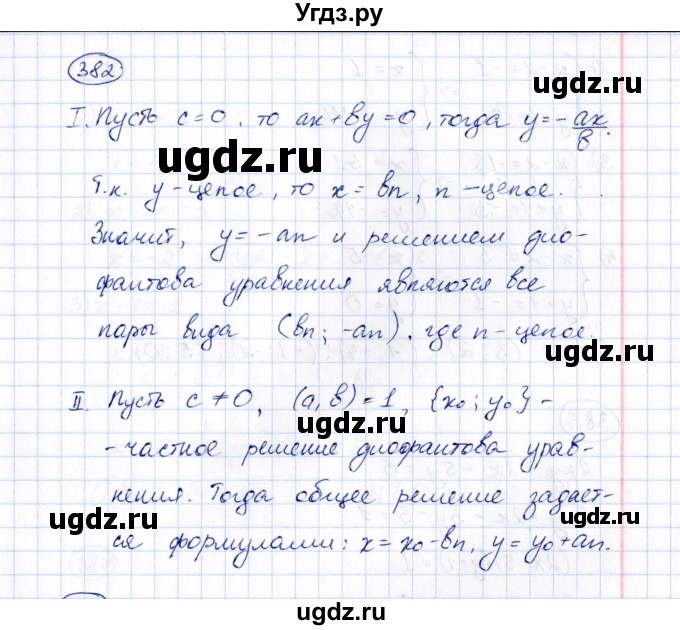 Угдз.ру
382
ugdz.ru
I. Пусть c=0, то ax+by=0, тогда y=-ax/b.
ugdz.ru
ugdz.ru
Т.к. y-целое, то x=bn, n-целое.
Значит, y=-an и решением дио-
ugdz.ru
фантова уравнения являются все
пары вида (bn; -an), где n-целое.
ugdz.ru
II. Пусть c≠0, (a,b)=1, {x₀; y₀}-
ugdz.ru
-частное решение диофантова урав-
ugdz.ru
нения. Тогда общее решение задает-
ugdz.ru
ugdz.ru
ся формулами: x=x₀-bn, y=y₀+an.
ugdz.ru